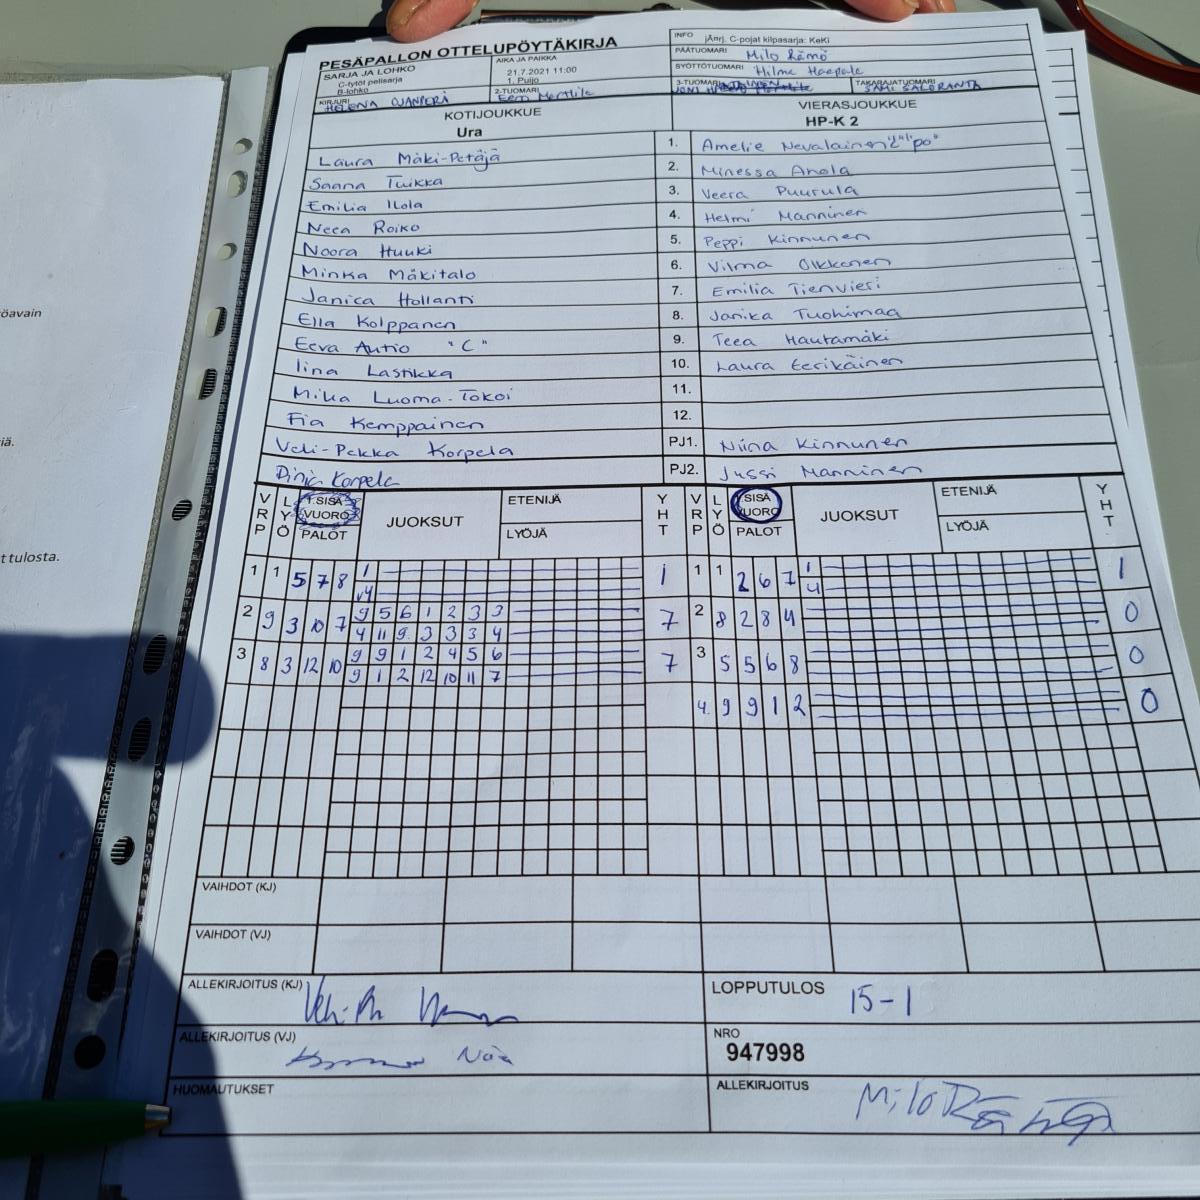 öavain
iä.
t tulosta.
PESÄPALLON OTTELUPÖYTÄKIRJA
SARJA JA LOHKO
C-tytöt pelisarja
B-lohko
AIKA JA PAIKKA
21.7.2021 11:00
1. Puijo
KIRJURI HELENA OJANPERÄ
2-TUOMARI
Eero Marttila
INFO jÄnrj. C-pojat kilpasarja: KeKi
PÄÄTUOMARI Milo Rämö
SYÖTTÖTUOMARI Hilma Haapala
3-TUOMARI
TAKARAJATUOMARI
SAMI SALORANTA
KOTIJOUKKUE
Ura
VIERASJOUKKUE
HP-K 2
Laura Mäki-Petäjä
1. Amelie Nevalainen "po"
Saana Tuikka
2. Minessa Anola
Emilia Ilola
3. Veera Puurula
Neea Roiko
4. Helmi Manninen
Noora Huuki
5. Peppi Kinnunen
Minka Mäkitalo
6. Vilma Olkkonen
Janica Hollanti
7. Emilia Tienvieri
Ella Kolppanen
8. Janika Tuohimaa
Eeva Autio "C"
9. Teea Hautamäki
Iina Lastikka
10. Laura Eerikäinen
Milia Luoma-Tokoi
11.
Fia Kemppainen
12.
Veli-Pekka Korpela
PJ1. Niina Kinnunen
Korpela
PJ2. Jussi Manninen
VRP LYÖ SISÄ VUORO PALOT JUOKSUT ETENIJÄ LYÖJÄ YHT
VRP LYÖ SISÄ VUORO PALOT JUOKSUT ETENIJÄ LYÖJÄ YHT
1 1 5 7 8 1 1
4
1 1 2 6 7 1 1
4
2 9 3 10 7 9 5 6 1 2 3 3 7
4 11 9 3 3 3 4
2 8 2 8 4 0
3 8 3 12 10 9 9 1 2 4 5 6 7
9 1 2 12 10 11 7
3 5 5 6 8 0
4. 9 9 1 2 0
VAIHDOT (KJ)
VAIHDOT (VJ)
ALLEKIRJOITUS (KJ)
LOPPUTULOS 15-1
ALLEKIRJOITUS (VJ)
NRO
947998
HUOMAUTUKSET
ALLEKIRJOITUS Milo Rämö